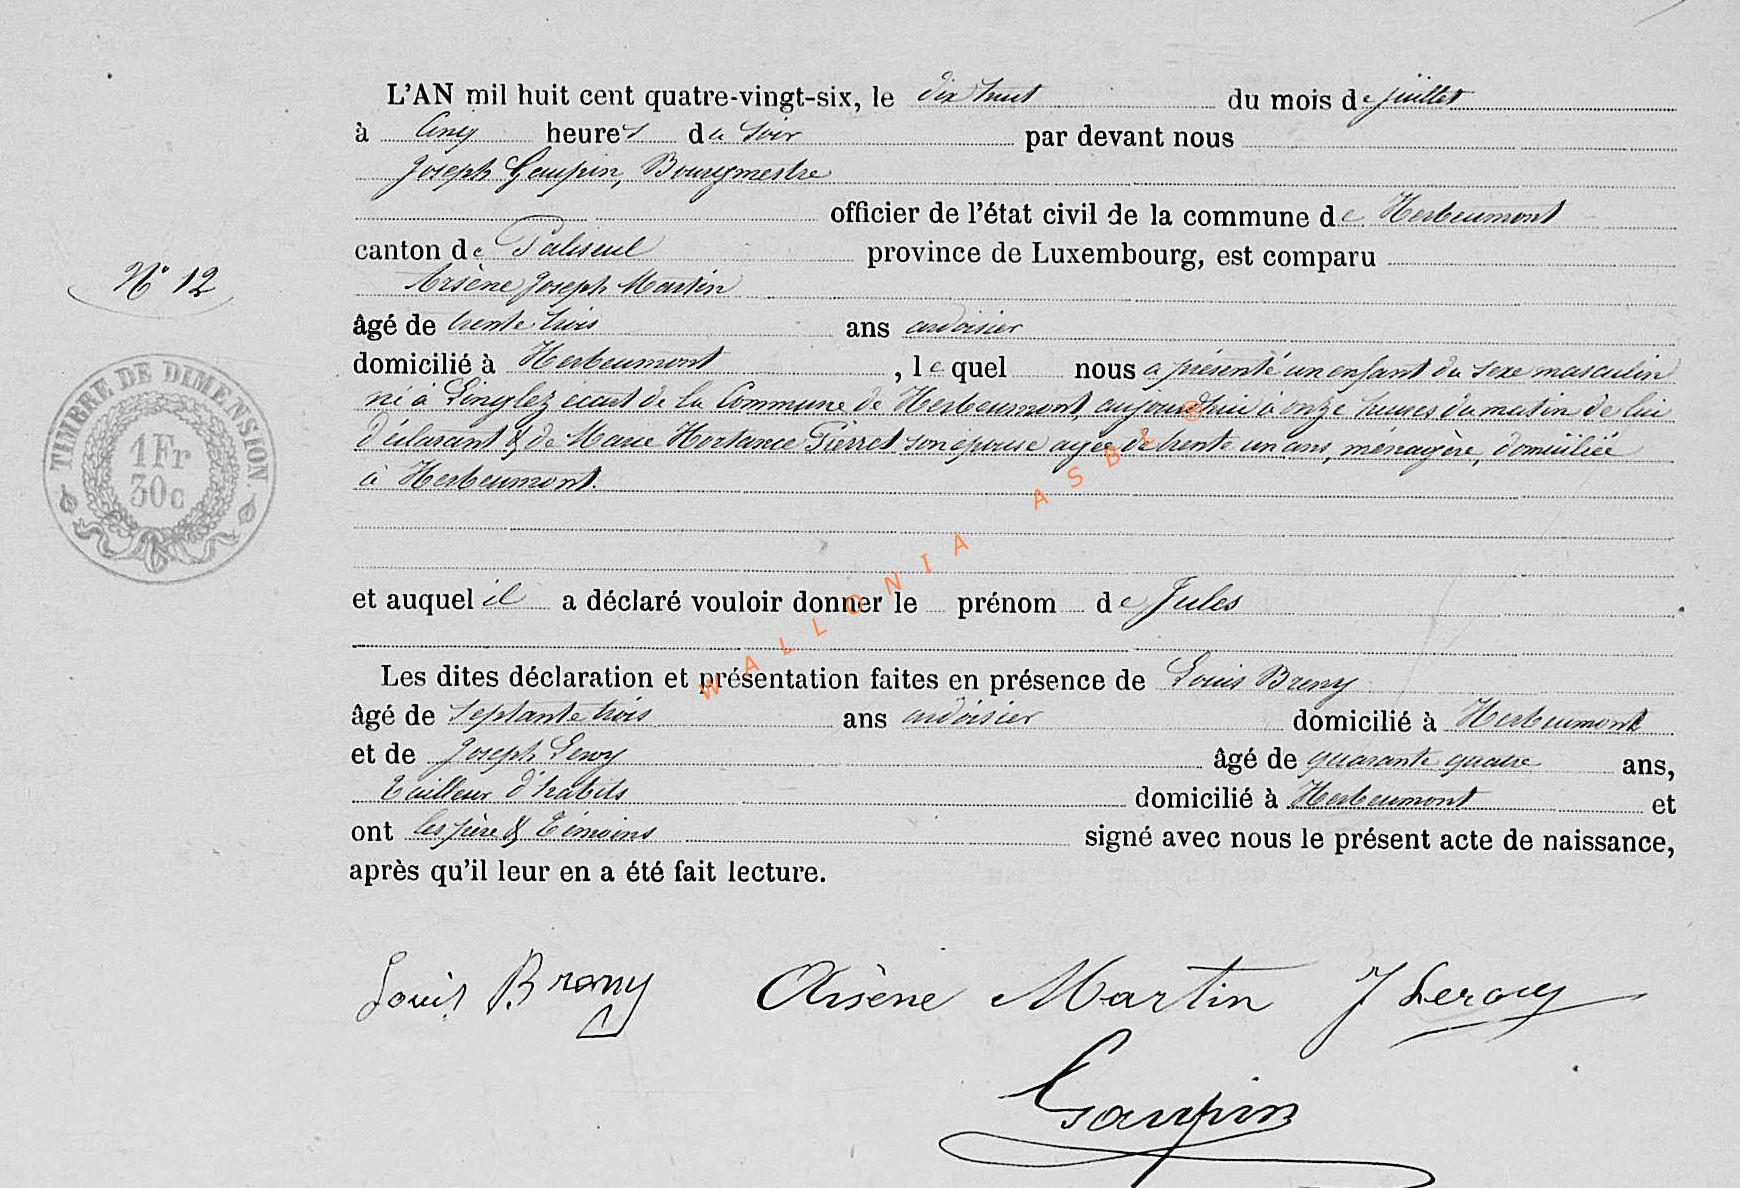 L'AN mil huit cent quatre-vingt-six, le dix huit du mois de juillet
à cinq heures du soir par devant nous
Joseph Gaupin, Bourgmestre
officier de l'état civil de la commune de Herbeumont
canton de Paliseul province de Luxembourg, est comparu
N° 12
Arsène Joseph Martin
âgé de trente trois ans ardoisier
domicilié à Herbeumont, lequel nous a présenté un enfant du sexe masculin
né à Linglez écart de la Commune de Herbeumont, aujourd'hui à onze heures du matin de lui
déclarant & de Marie Hortance Pierret son épouse agée de trente un ans, ménagère, domiciliée
à Herbeumont.
TIMBRE DE DIMENSION.
1 Fr
30c
et auquel il a déclaré vouloir donner le prénom de Jules
Les dites déclaration et présentation faites en présence de Louis Breny
âgé de septante trois ans ardoisier domicilié à Herbeumont
et de Joseph Leroy âgé de quarante quatre ans,
Tailleur d'habits domicilié à Herbeumont et
ont les père & Témoins signé avec nous le présent acte de naissance,
après qu'il leur en a été fait lecture.
WALLONIA ASBL ®
Louis Breny Arsène Martin J Leroy
Gaupin